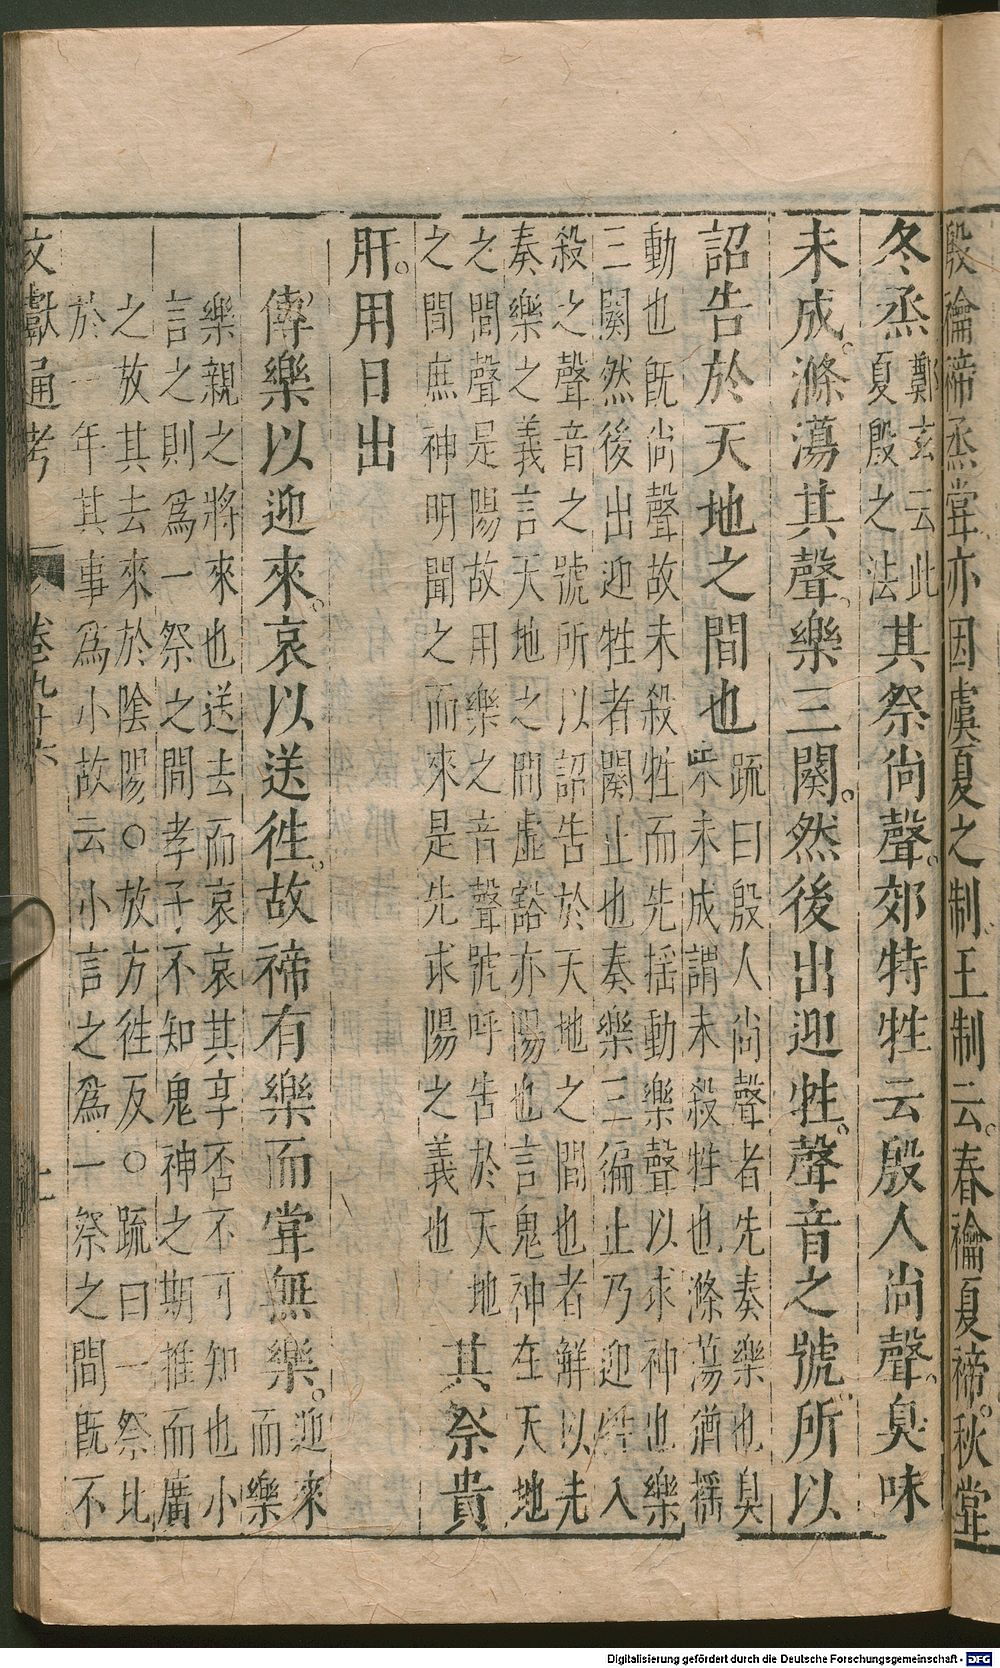 殷禴禘烝甞亦因虞夏之制王制云春禴夏禘秋甞
冬烝
鄭玄云此
夏殷之法
其祭尚聲郊特牲云殷人尚聲臭味
未成滌蕩其聲樂三闋然後出迎牲聲音之號所以
詔告於天地之間也
疏曰殷人尚聲者先奏樂也臭
味未成謂未殺牲也滌蕩猶揺
動也旣尚聲故未殺牲而先揺動樂聲以求神也樂
三闋然後出迎牲者闋止也奏樂三徧止乃迎牲入
殺之聲音之號所以詔告於天地之間也者解以先
奏樂之義言天地之間虛豁亦陽也言鬼神在天地
之間聲是陽故用樂之音聲號呼告於天地
之間庶神明聞之而來是先求陽之義也
其祭貴
肝用日出
傳樂以迎來哀以送徃故禘有樂而甞無樂
迎來
而樂
樂親之將來也送去而哀哀其享否不可知也小
言之則爲一祭之間孝子不知鬼神之期推而廣
之放其去來於陰陽○放方徃反○疏曰一祭比
於一年其事爲小故云小言之爲一祭之間旣不
文獻通考
卷九十六
十一
Digitalisierung gefördert durch die Deutsche Forschungsgemeinschaft - DFG